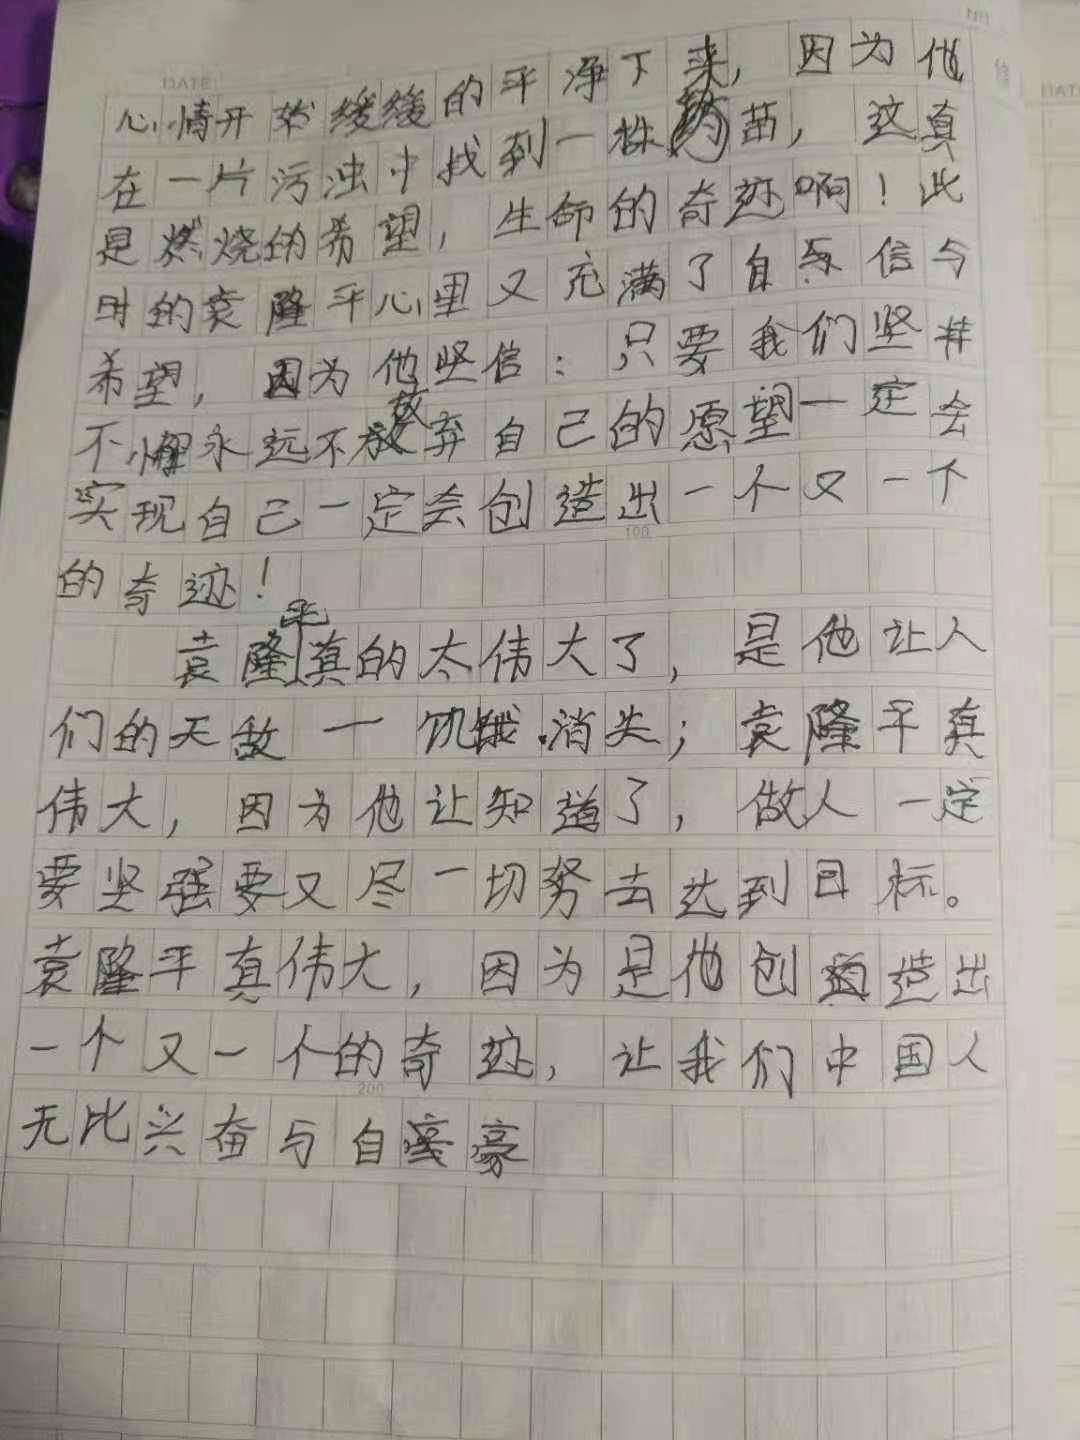 DATE
心情开始缓缓的平净下来，因为他
在一片污浊中找到一株苗，这真
是燃烧的希望，生命的奇迹啊！此
时的袁隆平心里又充满了自信与
希望，因为他坚信：只要我们坚持
不懈永远不放弃自己的愿望一定会
实现自己一定会创造出一个又一个
100
的奇迹！
袁隆平真的太伟大了，是他让人
们的天敌一饥饿消失；袁隆平真
伟大，因为他让知道了，做人一定
要坚强要又尽一切努去达到目标。
袁隆平真伟大，因为是他创造出
一个又一个的奇迹，让我们中国人
200
无比兴奋与自豪